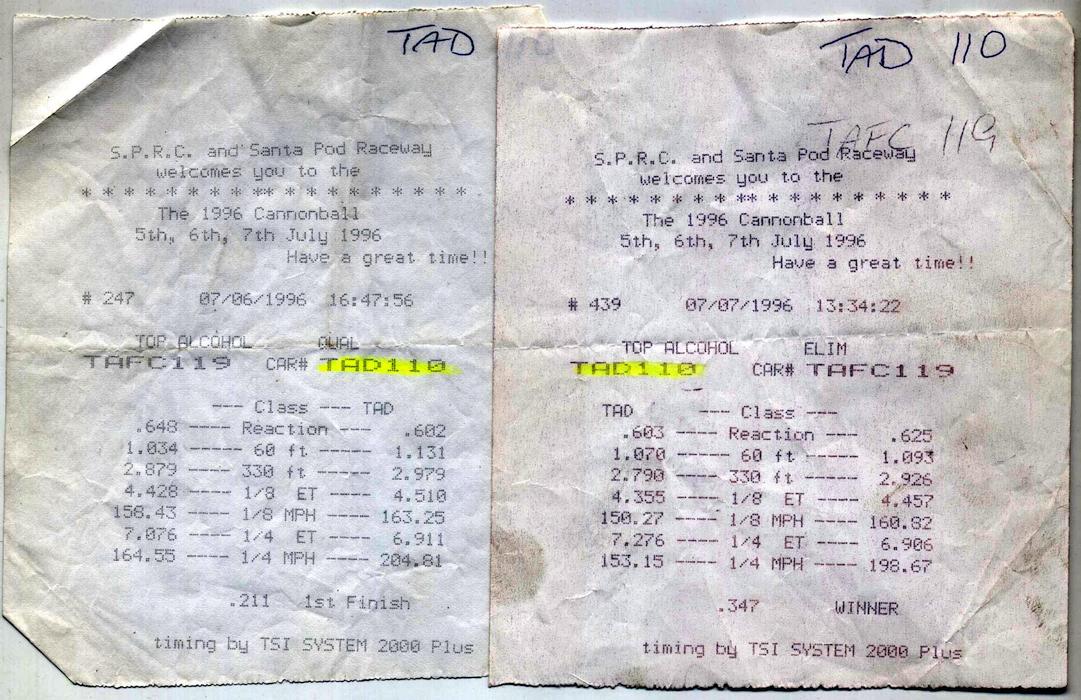 TAD
S.P.R.C. and Santa Pod Raceway
welcomes you to the
* * * * * * * * * ** * * * * * * * * *
The 1996 Cannonball
5th, 6th, 7th July 1996
Have a great time!!
# 247 07/06/1996 16:47:56
TOP ALCOHOL QUAL
TAFC119 CAR# TAD110
--- Class --- TAD
.648 ---- Reaction --- .602
1.034 ----- 60 ft ----- 1.131
2.879 ---- 330 ft ---- 2.979
4.428 ---- 1/8 ET ---- 4.510
158.43 ---- 1/8 MPH ---- 163.25
7.076 ---- 1/4 ET ---- 6.911
164.55 ---- 1/4 MPH ---- 204.81
.211 1st Finish
timing by TSI SYSTEM 2000 Plus
TAD 110
TAFC 119
S.P.R.C. and Santa Pod Raceway
welcomes you to the
* * * * * * * * * ** * * * * * * * * *
The 1996 Cannonball
5th, 6th, 7th July 1996
Have a great time!!
# 439 07/07/1996 13:34:22
TOP ALCOHOL ELIM
TAD110 CAR# TAFC119
TAD --- Class ---
.603 ---- Reaction --- .625
1.070 ---- 60 ft ----- 1.093
2.790 ---- 330 ft ---- 2.926
4.355 ---- 1/8 ET ---- 4.457
150.27 ---- 1/8 MPH ---- 160.82
7.276 ---- 1/4 ET ---- 6.906
153.15 ---- 1/4 MPH ---- 198.67
.347 WINNER
timing by TSI SYSTEM 2000 Plus